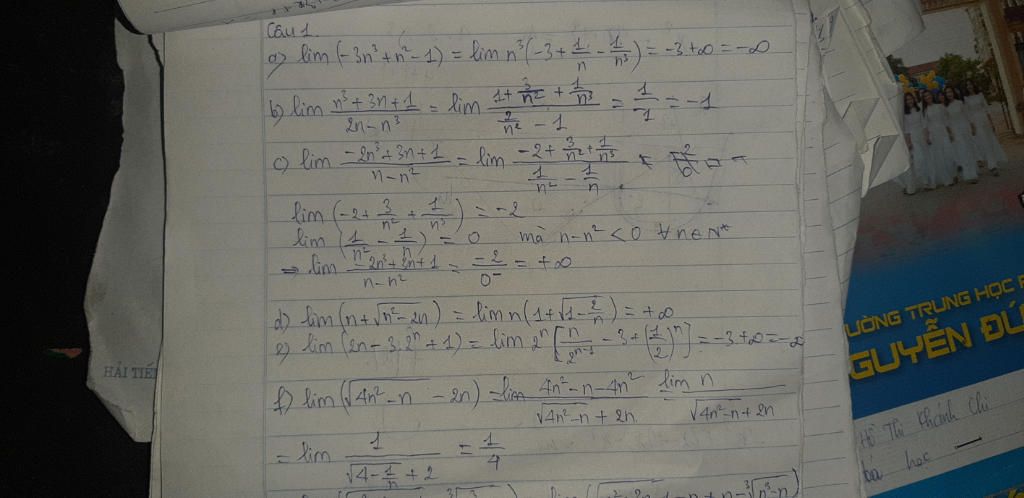 Câu 1
a) lim (-3n³ + n² - 1) = lim n³(-3 + 1/n - 1/n³) = -3 + ∞ = -∞
b) lim (n³ + 3n + 1)/(2n - n³) = lim (1 + 3/n² + 1/n³)/(2/n² - 1) = 1/1 = -1
c) lim (-2n³ + 3n + 1)/(n - n²) = lim (-2 + 3/n² + 1/n³)/(1/n² - 1/n)
lim (-2 + 3/n² + 1/n³) = -2
lim (1/n² - 1/n) = 0 mà n - n² < 0 ∀n∈N*
⇒ lim (-2n³ + 3n + 1)/(n - n²) = -2/0⁻ = +∞
d) lim (n + √(n² - 2n)) = lim n(1 + √(1 - 2/n)) = +∞
e) lim (2n - 3.2ⁿ + 1) = lim 2ⁿ[n/2ⁿ⁻¹ - 3 + (1/2)ⁿ] = -3 + ∞ = -∞
f) lim (√(4n² - n) - 2n) = lim (4n² - n - 4n²)/(√(4n² - n) + 2n) = lim n/(√(4n² - n) + 2n)
= lim 1/(√(4 - 1/n) + 2) = 1/4
HẢI TIẾ
ƯỜNG TRUNG HỌC P
GUYỄN ĐỨ
Hồ Thị Khánh Chi
học